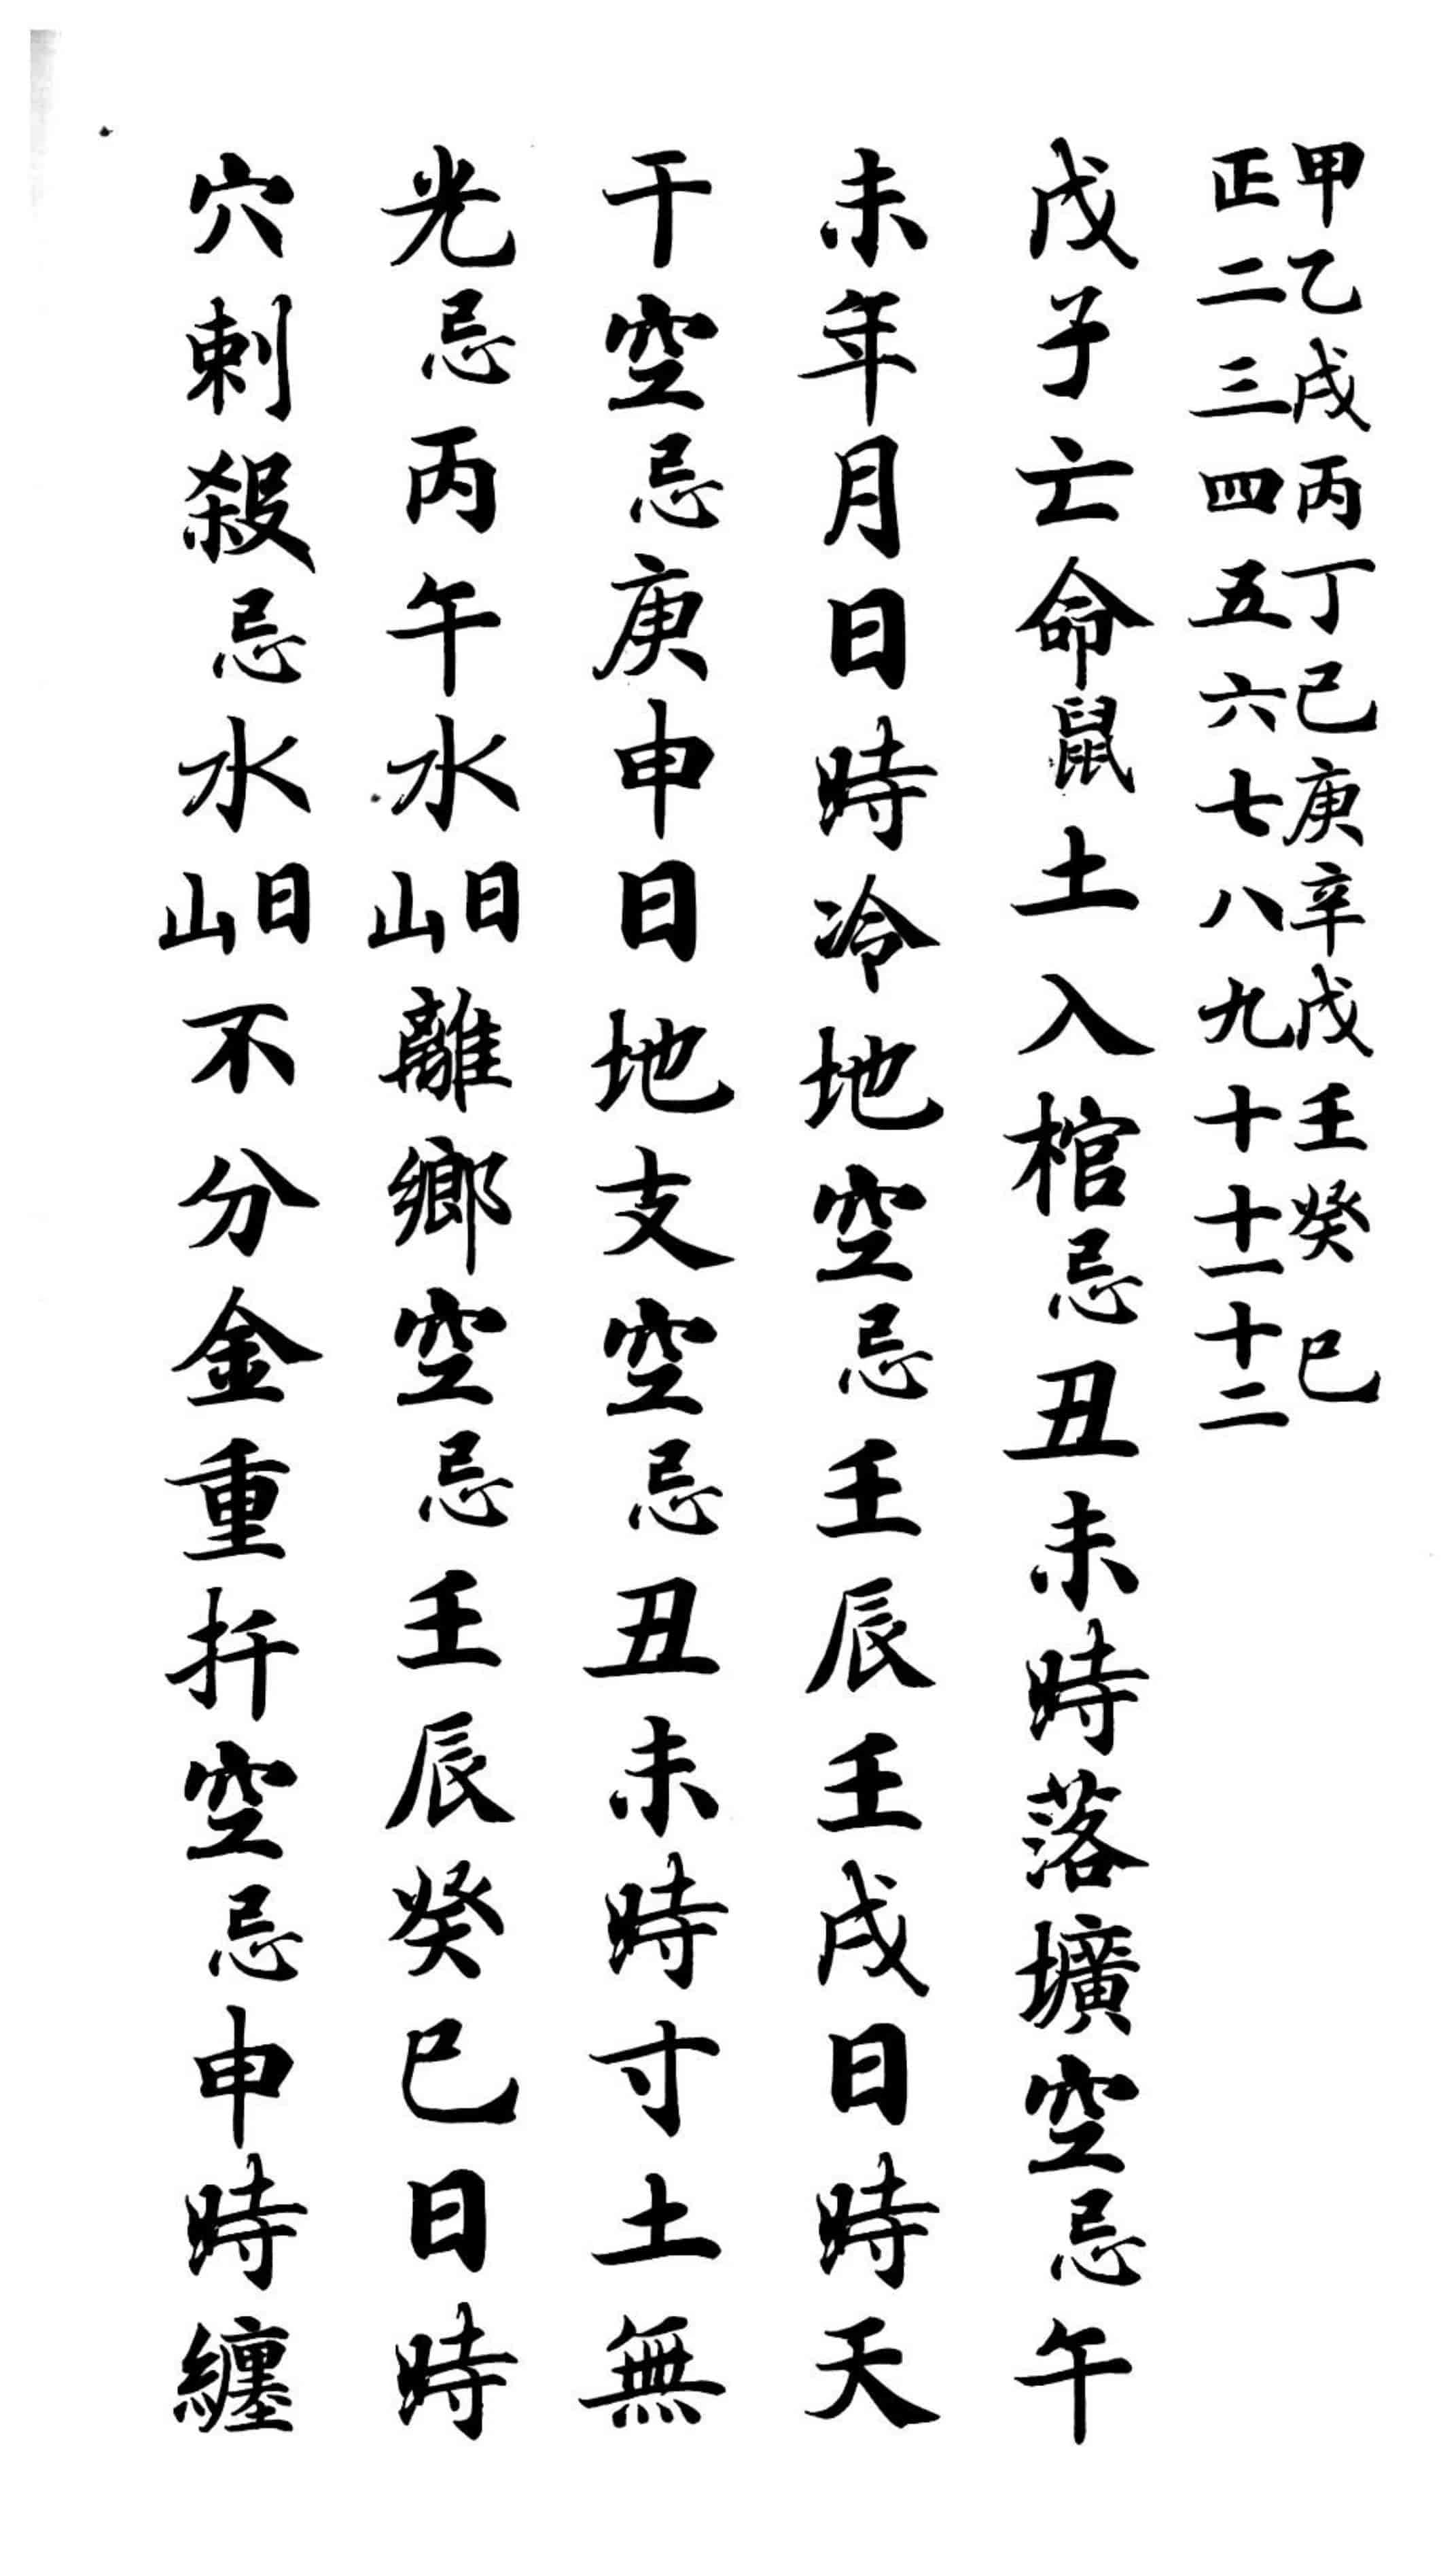 甲乙戌丙丁己庚辛戊壬癸巳
正二三四五六七八九十十一十二
戊子亡命鼠土入棺忌丑未時落壙空忌午
未年月日時冷地空忌壬辰壬戌日時天
干空忌庚申日地支空忌丑未時寸土無
光忌丙午水日山離鄉空忌壬辰癸巳日時
穴刺殺忌水日山不分金重扦空忌申時纏